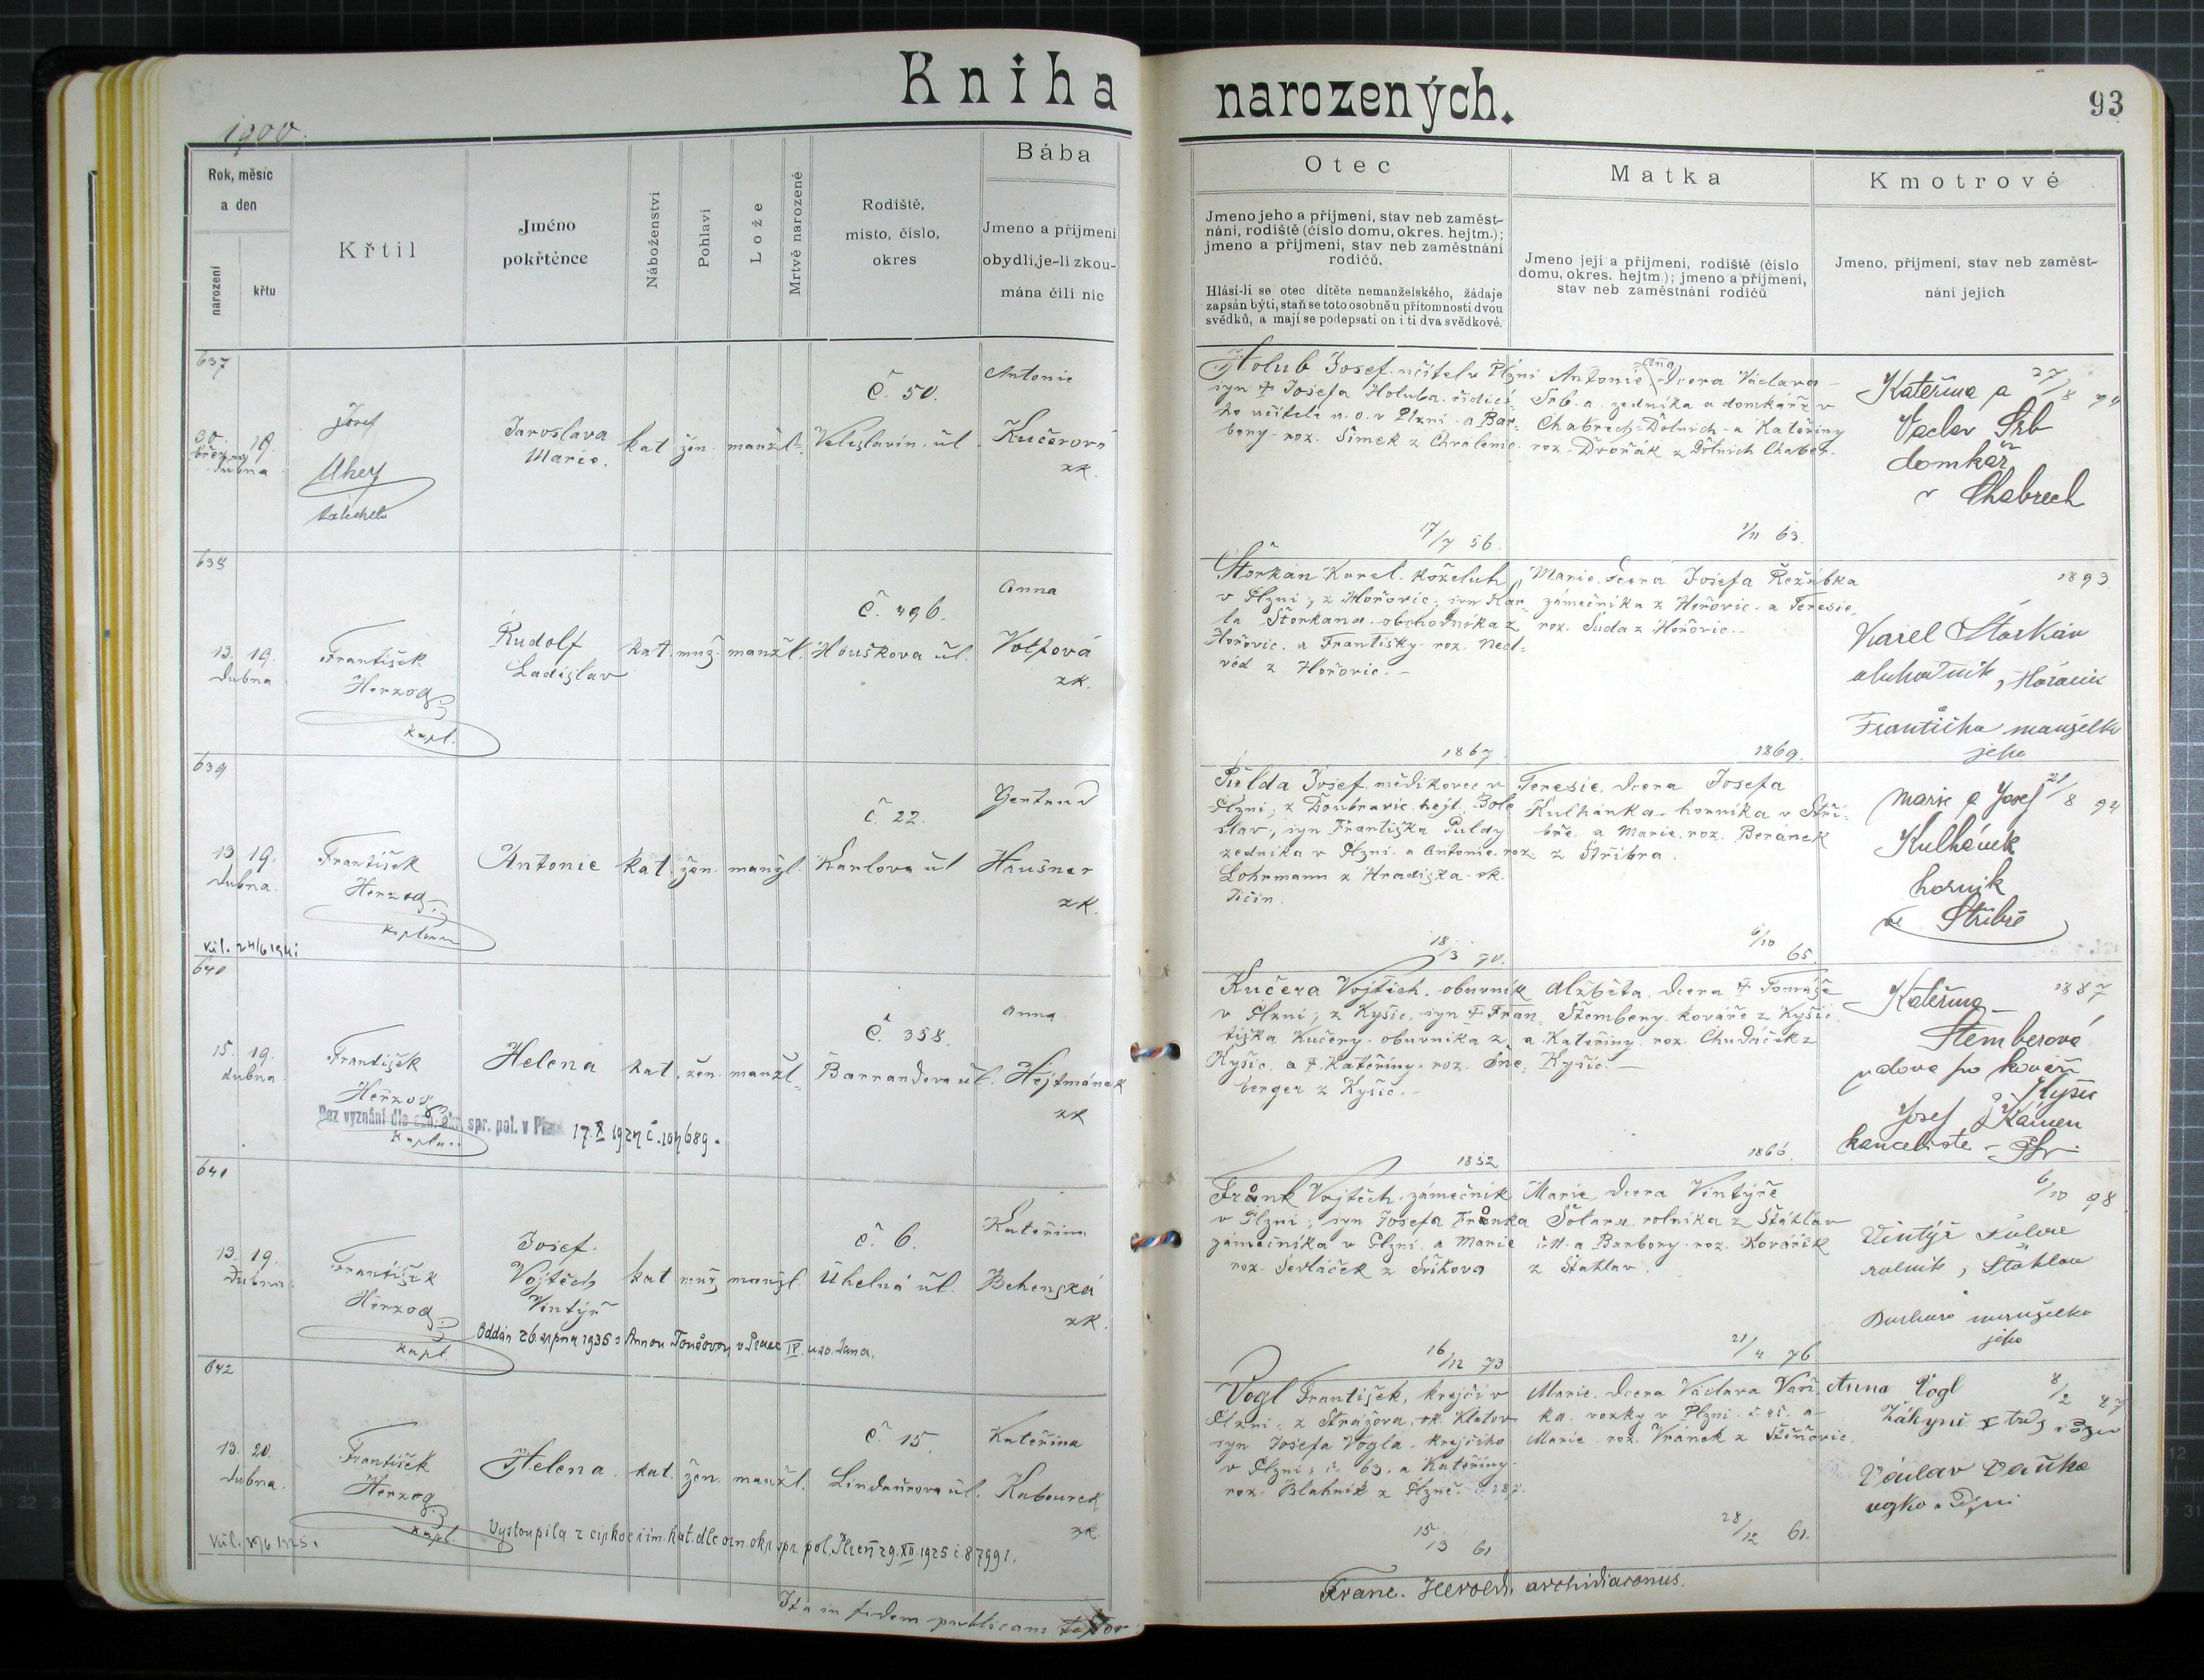 Kniha narozených.
93
1900.
Rok, měsíc
a den
narození
křtu
Křtil
Jméno
pokřtěnce
Náboženství
Pohlaví
Lože
Mrtvě narozené
Rodiště,
místo, číslo,
okres
Bába
Jmeno a příjmení
obydlí, je-li zkou-
mána čili nic
Otec
Jmeno jeho a příjmení, stav neb zaměst-
nání, rodiště (číslo domu, okres. hejtm.);
jmeno a příjmení, stav neb zaměstnání
rodičů.
Hlásí-li se otec dítěte nemanželského, žádaje
zapsán býti, staň se toto osobně u přítomnosti dvou
svědků, a mají se podepsati on i ti dva svědkové.
Matka
Jmeno její a příjmení, rodiště (číslo
domu, okres. hejtm.); jmeno a příjmení,
stav neb zaměstnání rodičů
Kmotrové
Jmeno, příjmení, stav neb zaměst-
nání jejich
637
30.
března
19.
dubna
Josef
Uhey
Jaroslava
Marie.
kat
žen.
manžl.
Č. 50.
Veleslavín. ul
Antonie
Kučerová
zk.
Holub Josef. učitel v Plzni
syn † Josefa Holuba. řídící-
ho učitele n. o. v Plzni a Bar-
bory. roz. Šimek
17/7 56.
Antonie Dcera Václava
Srb. a. zedníka a domkáře v
Chabrech-Dolních. a Kateřiny
roz. Dvořák z Dolních Chaber.
1/11 63.
Kateřina a
27/8 94
Václav Srb
domkář
v Chabrech
638
13. 19.
dubna
František
Herzog
kapl.
Rudolf
Ladislav
kat.
muž.
manžl.
Č. 496.
Houškova ul.
Anna
Volfová
zk.
Štorkán Karel. koželuh
v Plzni; z Hořovic; syn Kar
la Štorkána. obchodníka z
Hořovic. a Františky. roz. Ned-
věd z Hořovic.
1867
Marie. dcera Josefa Řežábka
zámečníka z Hořovic. a Teresie
roz. Suda z Hořovic.
1869.
1893
Karel Štorkán
obchodník, Hořovic
Františka manželka
jeho
639
13. 19.
dubna.
František
Herzog
kaplan
Antonie
kat
žen.
manžl.
Č. 22.
Karlova ul
Gertrud
Hausner
zk.
Půlda Josef. mědikovec v
Plzni; z Doubravic. hejt. Bole
slav; syn Františka Půldy
zedníka v Plzni. a Antonie. roz
Lohrmann z Hradiska. ok.
Jičín.
18/3 70.
Teresie, dcera Josefa
Kulhánka. horníka v Stří-
bře. a Marie. roz. Beránek
z Stříbra.
6/10 65.
Marie a Josef
21/8 94
Kulhánek
horník
ve Stříbře
640
15. 19.
dubna
František
Herzog
kaplan
Helena
kat.
žen.
manžl.
Č. 358.
Barrandova ul.
Anna
Hejtmánek
zk
Bez vyznání dle ozn. okr. spr. pol. v Plzni
Kučera Vojtěch. obuvník
v Plzni; z Kyšic, syn † Fran
tiška Kučery. obuvníka z
Kyšic. a †. Kateřiny. roz. Šne
berger z Kyšic.
1852
Alžběta. dcera † Tomáše
Štembery. kováře z Kyšic
a Kateřiny. roz. Chudáček z
Kyšic.
1866.
Kateřina
1887
Štemberová
vdova po kováři
Kyšic
Josef Kámen
641
13. 19.
dubna.
František
Herzog
kapl.
Josef.
Vojtěch
Vintýř
kat
muž
manžl.
č. 6.
Úhelná ul.
Kateřina
Behenská
zk.
Oddán 26. srpna 1935 s Annou Toušovou v Praze IV. u sv. Jana.
Fránk Vojtěch. zámečník
v Plzni; syn Josefa Fránka
zámečníka v Plzni. a Marie
roz. Sedláček z Siřkova
16/12 73
Marie, dcera Vintýře
Šolara. rolníka z Šťáhlav
a Barbory. roz. Kovářík
z Šťáhlav.
21/4 76
6/10 98
Vintýř Šolar
rolník, Šťáhlav
Barbora manželka
jeho
642
13. 20.
dubna.
František
Herzog
kapl.
Helena.
kat.
žen.
manžl.
Č. 15.
Lindauerova ul.
Kateřina
Kabourek
zk.
Vystoupila z církve řím. kat. dle ozn. okr. spr. pol. Plzeň 29. XII. 1925 č. 87991.
Vogl František, krejčí v
Plzni; z Strážova. ok. Klatov
syn Josefa Vogla. krejčího
v Plzni; č. 63. a Kateřiny.
roz. Blahník z Plzně.
15/3 61
Marie. dcera Václava Vaň
ka. vozky v Plzni. č 45. a
Marie. roz. Vránek z Štěnovic.
28/12 61.
Anna Vogl
8/2 47
Václav Vaňka
Ita in fidem publicam
Franc. Herold. archidiaconus.